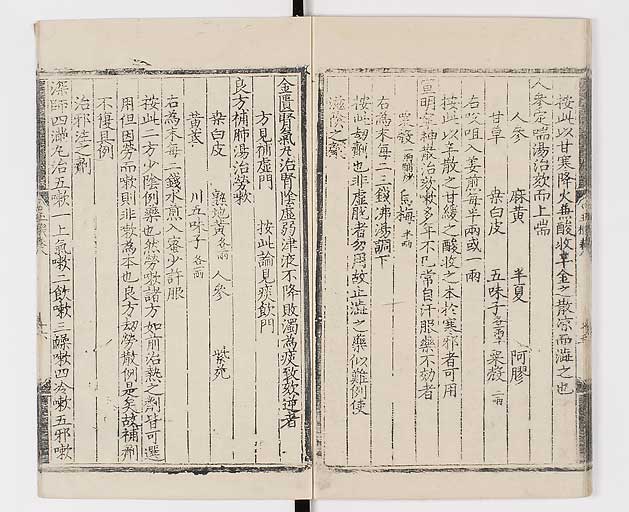 按此以甘寒降火兼酸收辛金之散凉而澁之也
人參定喘湯治欬而上喘
人參 麻黄 半夏 阿膠
甘草 桒白皮 五味子各一兩半 粟殼二兩
右㕮咀入姜煎每半兩或一兩
按此以辛散之甘緩之酸收之本於寒邪者可用
宣明寧神散治欬嗽多年不已常自汗服藥不効者
粟殼 烏梅半兩
右為末每二三錢沸湯調下
按此刼劑也非虚脱者勿用故止澁之藥似難例使
滋陰之藥
金匱腎氣丸治腎隂虚弱津液不降敗濁為痰致欬逆者
方見補虚門 按此論見痰飲門
良方補肺湯治勞嗽
桒白皮 熟地黄各二兩 人參 紫苑
黄芪 川五味子各一兩
右為末每二錢水煎入蜜少許服
按此二方少隂例藥也然勞嗽諸方如前治熱之劑皆可選
用但因勞而嗽則非嗽為本也良方刼勞散例是矣故補劑
不復具例
治邪法之劑
深師四滿丸治五嗽一上氣嗽二飲嗽三躁嗽四冷嗽五邪嗽